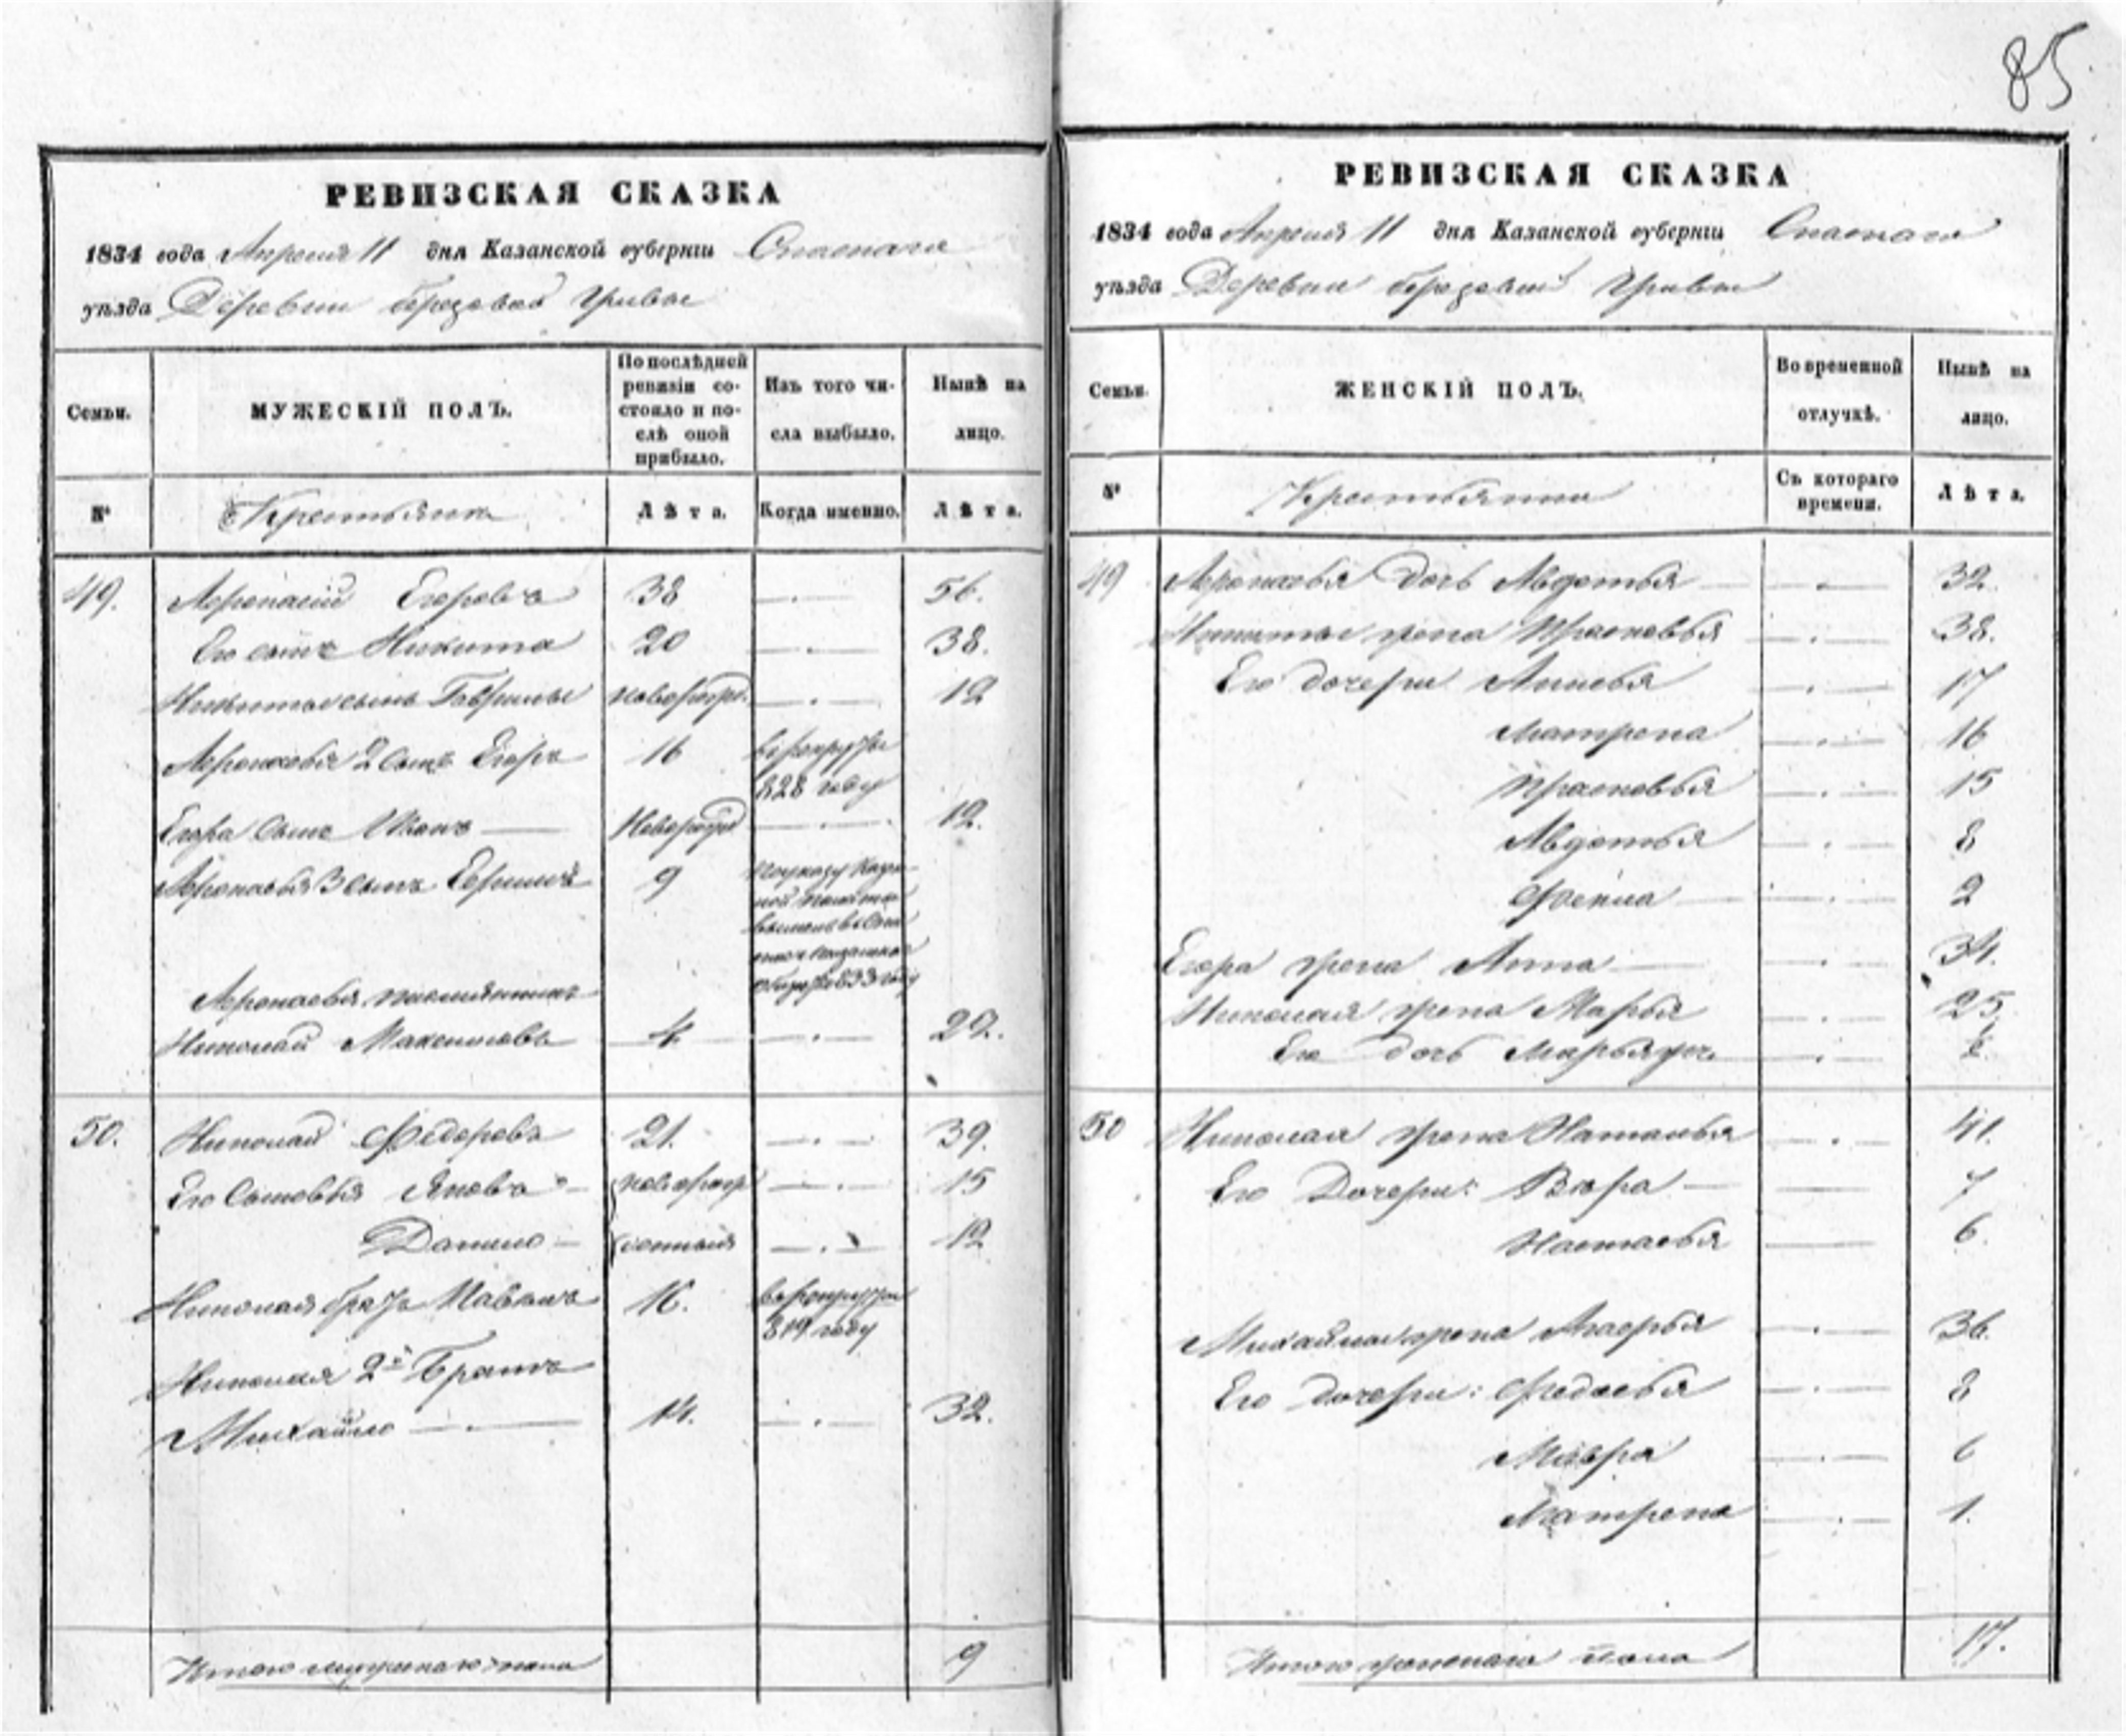 85
РЕВИЗСКАЯ СКАЗКА
1834 года Апреля 11 дня Казанской губернiи Спаскаго
уѣзда Деревни березовой Гривы
Семьи.
МУЖЕСКIЙ ПОЛЪ.
По послѣдней ревизiи состояло и послѣ оной прибыло.
Изъ того числа выбыло.
Нынѣ на лицо.
№
Крестьяня
Лѣта.
Когда именно.
Лѣта.
49. Афонасей Егоровъ 38 56.
Его сынъ Никита 20 38.
Никиты сынъ Гаврилы новорож. 12
Афонасья 2 сынъ Егоръ 16 въ рекруты
828 году
Егора сынъ Иванъ Новорожд 12.
Афонасья 3 сынъ Ефимъ 9 по указу Казен
ной палаты
833 году
Афонасья племянникъ
Николай Максимовъ 4 22.
50. Николай Федоровъ 21. 39.
Его Сыновья Яковъ новорож 15
Данило денныя 12
Николая братъ Павелъ 16. в рекруты
819 году
Николая 2й Братъ
Михайло 14. 32.
Итого мужеска пола 9
РЕВИЗСКАЯ СКАЗКА
1834 года Апреля 11 дня Казанской губернiи Спаскаго
уѣзда Деревни березовой Гривы
Семьи.
ЖЕНСКIЙ ПОЛЪ.
Во временной отлучкѣ.
Нынѣ на лицо.
№
Крестьянки
Съ котораго времени.
Лѣта.
49 Афонасья дочь Авдотья 32
Никиты жена Прасковья 38.
Его дочери Анисья 17
Матрена 16
Прасковья 15
Авдотья 8
Фекла 2
Егора жена Анна 34.
Николая жена Марья 25.
Его дочь
50 Николая жена Наталья 41.
Его Дочери: Вѣра 7
Настасья 6.
Михайлы жена Агафья 36.
Его дочери: Федосья 8
Мавра 6
Матрена 1.
Итого женскаго пола 17.